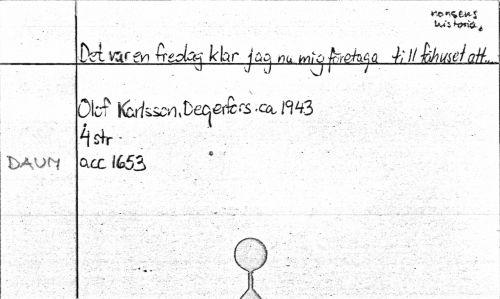 nonsens
historia.
Det var en fredag klar jag nu mig företaga till fähuset att...
Olof Karlsson, Degerfors. ca 1943
4 str.
DAUM acc 1653